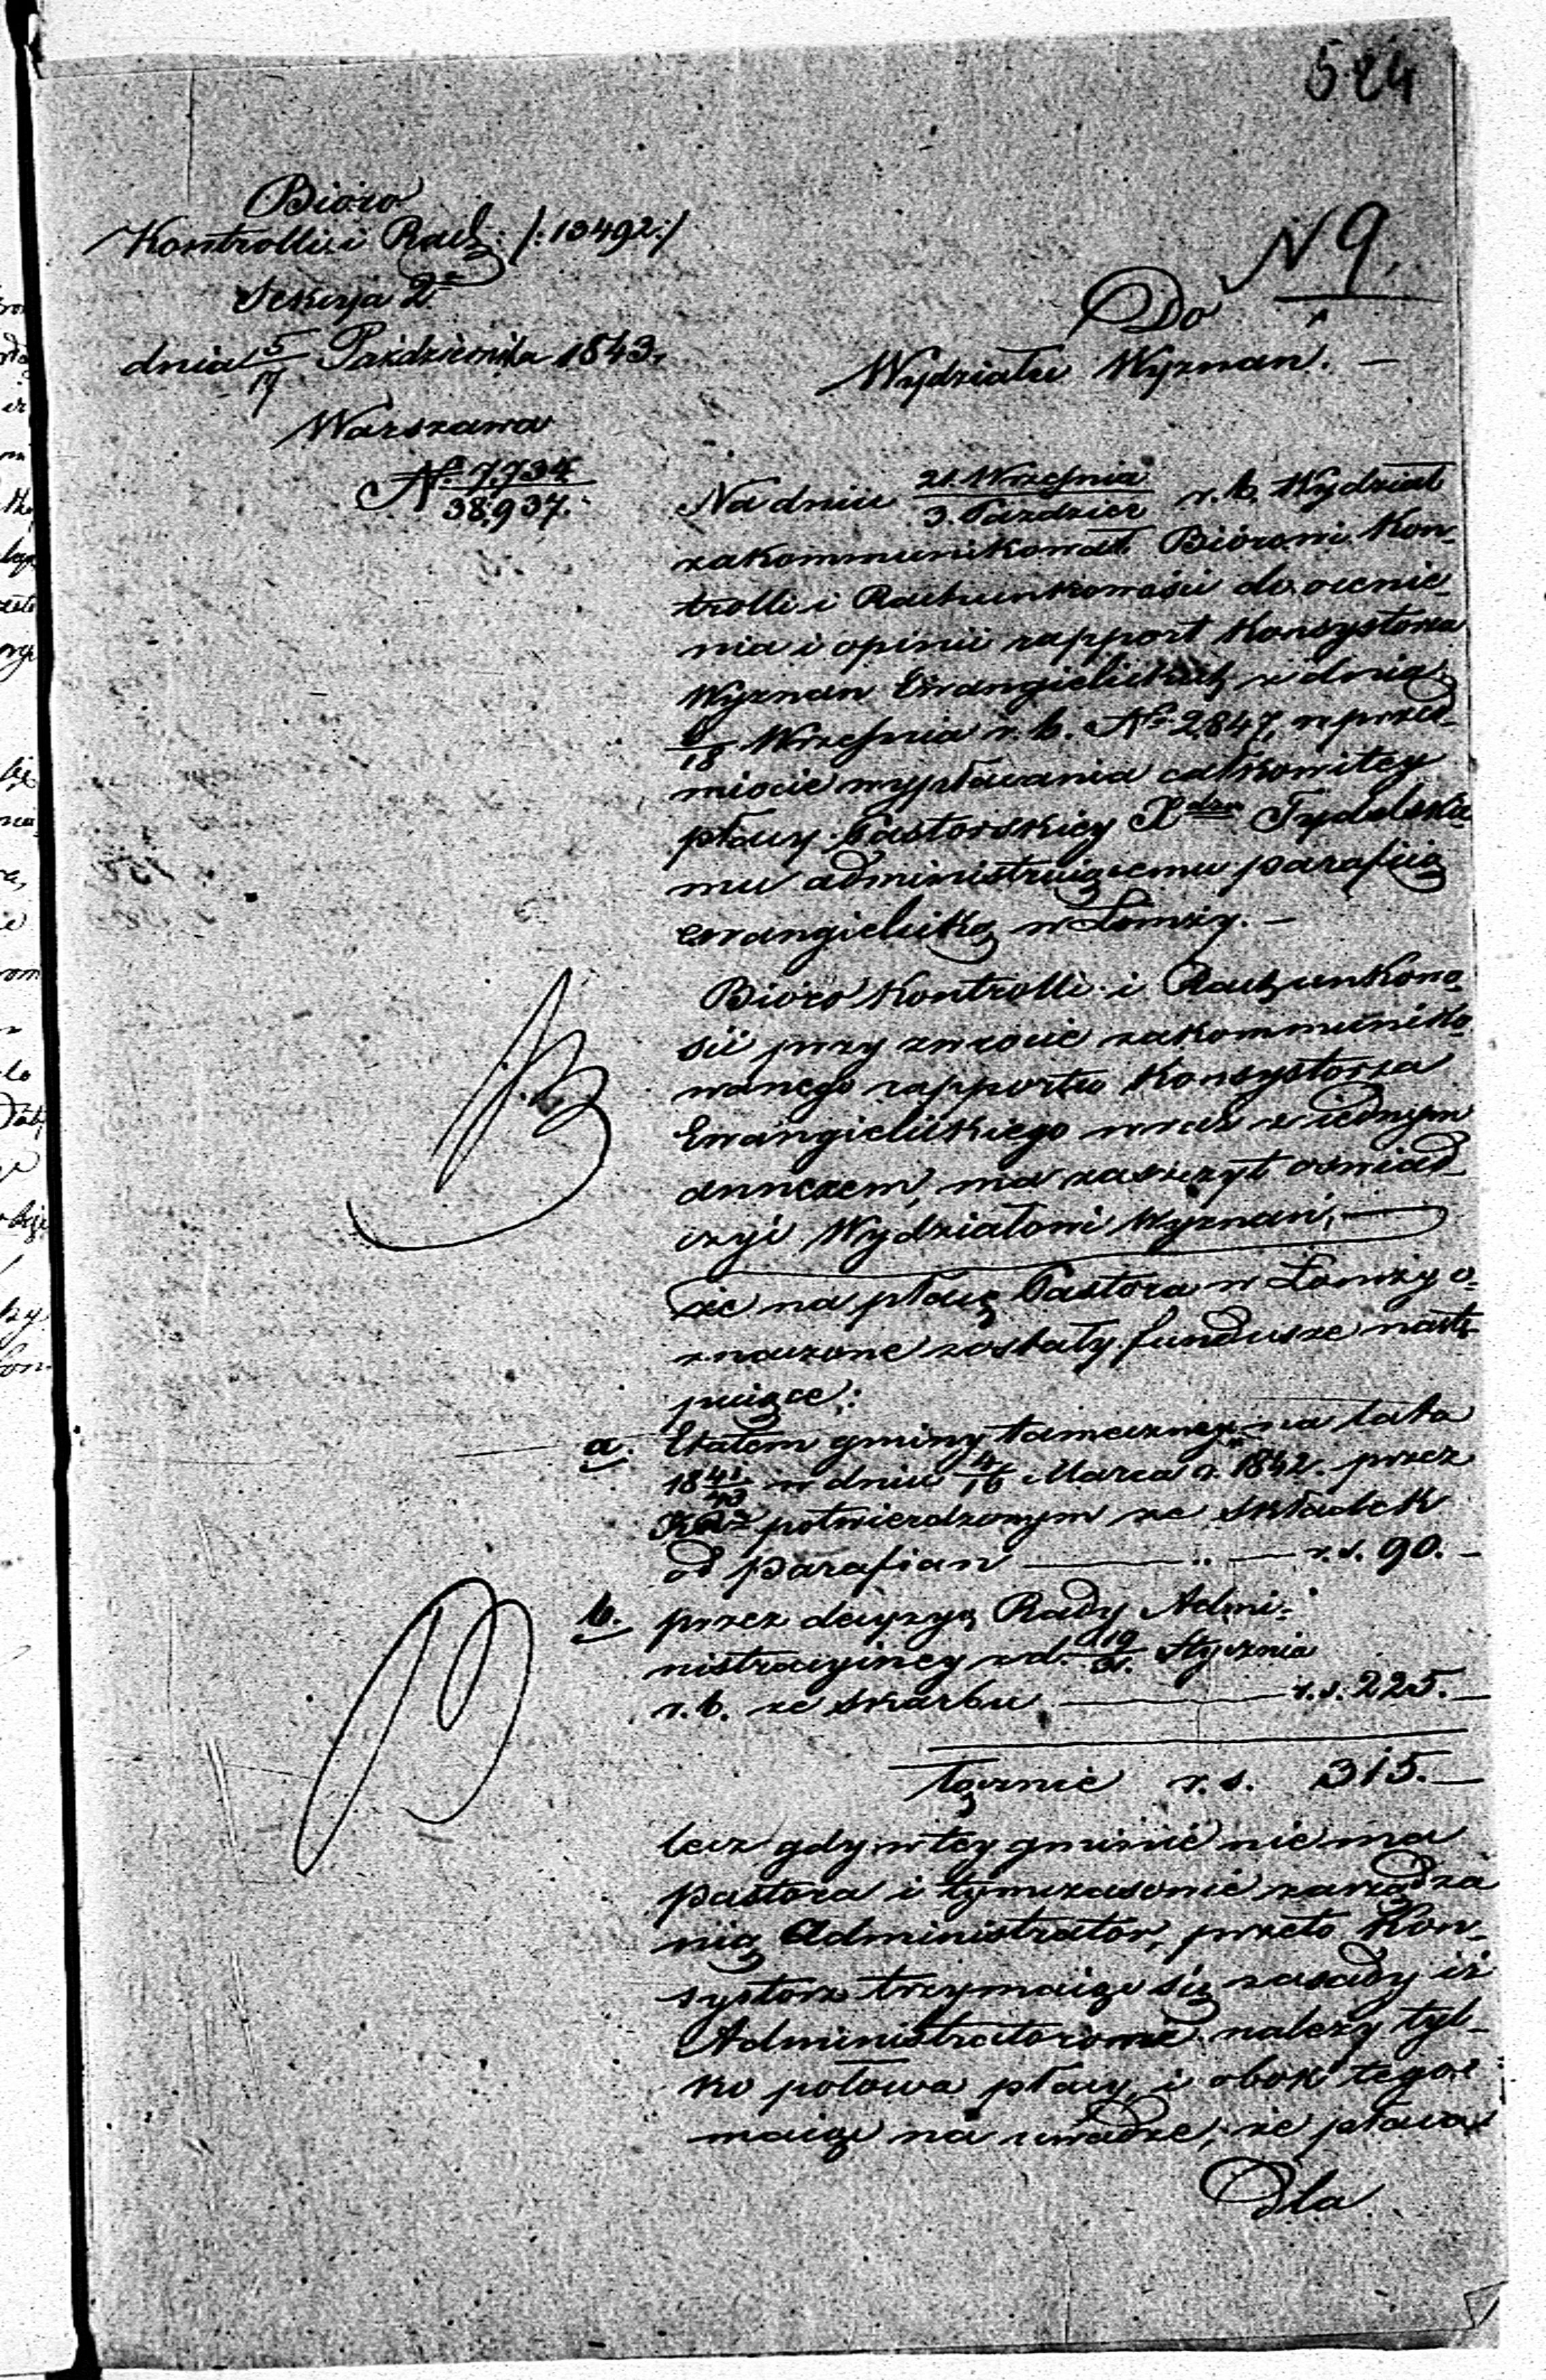 524
Bióro
Kontrolli i Rach: /:13492:/
Sekcya 2a
dnia 5/17 Października 1843.
Warszawa
No 7,734/38,937.
N 9.
Do
Wydziału Wyznań. —
Na dniu 21. Września/3. Paździer r. b. Wydział
zakommunikował Biórowi Kon-
trolli i Rachunkowości do ocenie-
nia i opinii rapport Konsystorza
Wyznań Ewangielickich z dnia
6/18 Września r. b. No 2847, w przed-
miocie wypłacania całkowitey
płacy Pastorskiey Xdzu
mu administruiącemu parafiią
ewangielicką w Łomży. —
Bióro Kontrolli i Rachunkowo-
ści przy zwrocie zakommuniko-
wanego rapportu Konsystorza
Ewangielickiego wraz z iednym
annexem, ma zaszczyt oświad-
czyć Wydziałowi Wyznań, —
że na płacę Pastora w Łomży o-
znaczone zostały fundusze nastę-
puiące:
a. Etatem gminy tameczney na lata
1841/43 w dniu 4/16 Marca r. 1842. przez
potwierdzonym ze składek
od parafian — „ — r. s. 90. —
b. przez decyzyą Rady Admi-
nistracyiney z d. 19/31. Stycznia
r. b. ze skarbu — r. s. 225. —
łącznie r. s. 315. —
lecz gdy w tey gminie nie ma
pastora i tymczasowie zarządza
nią Administrator, przeto Kon-
systorz trzymaiąc się zasady iż
Administratorowi należy tyl-
ko połowa płacy, i obok tego
maiąc na uwadze, że płaca
dla